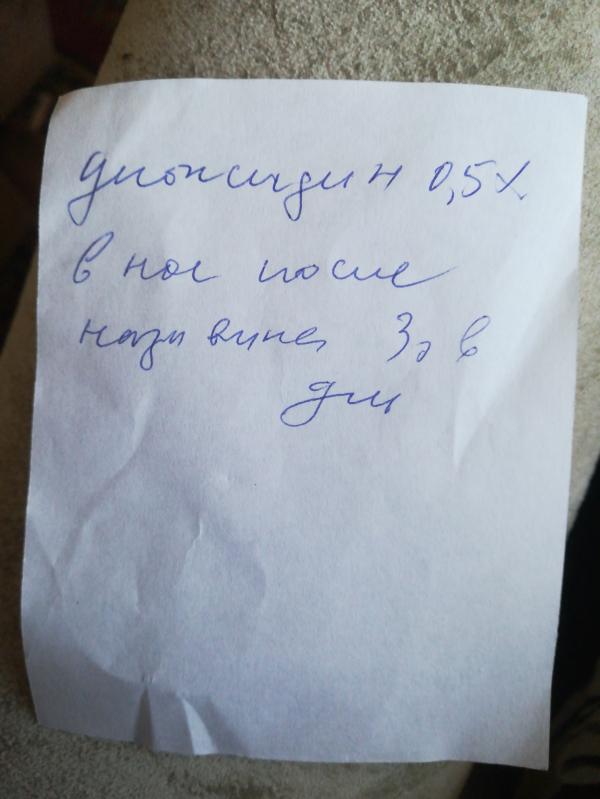 диоксидин 0,5%
в нос после
називина 3р в
дн